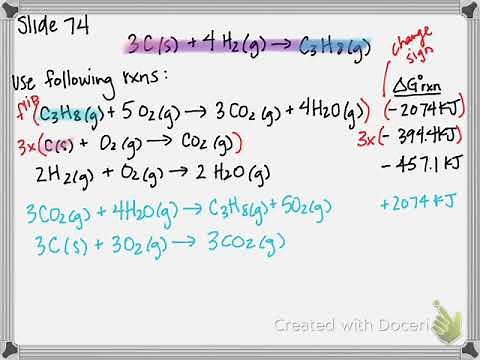 Slide 74
3C(s) + 4H₂(g) → C₃H₈(g)
change sign
use following rxns:
ΔG°rxn
flip (C₃H₈(g) + 5O₂(g) → 3CO₂(g) + 4H₂O(g)) (-2074KJ)
3x(C(s) + O₂(g) → CO₂(g)) 3x(-394.4KJ)
2H₂(g) + O₂(g) → 2H₂O(g) -457.1KJ
3CO₂(g) + 4H₂O(g) → C₃H₈(g) + 5O₂(g) +2074KJ
3C(s) + 3O₂(g) → 3CO₂(g)
Created with Doceri